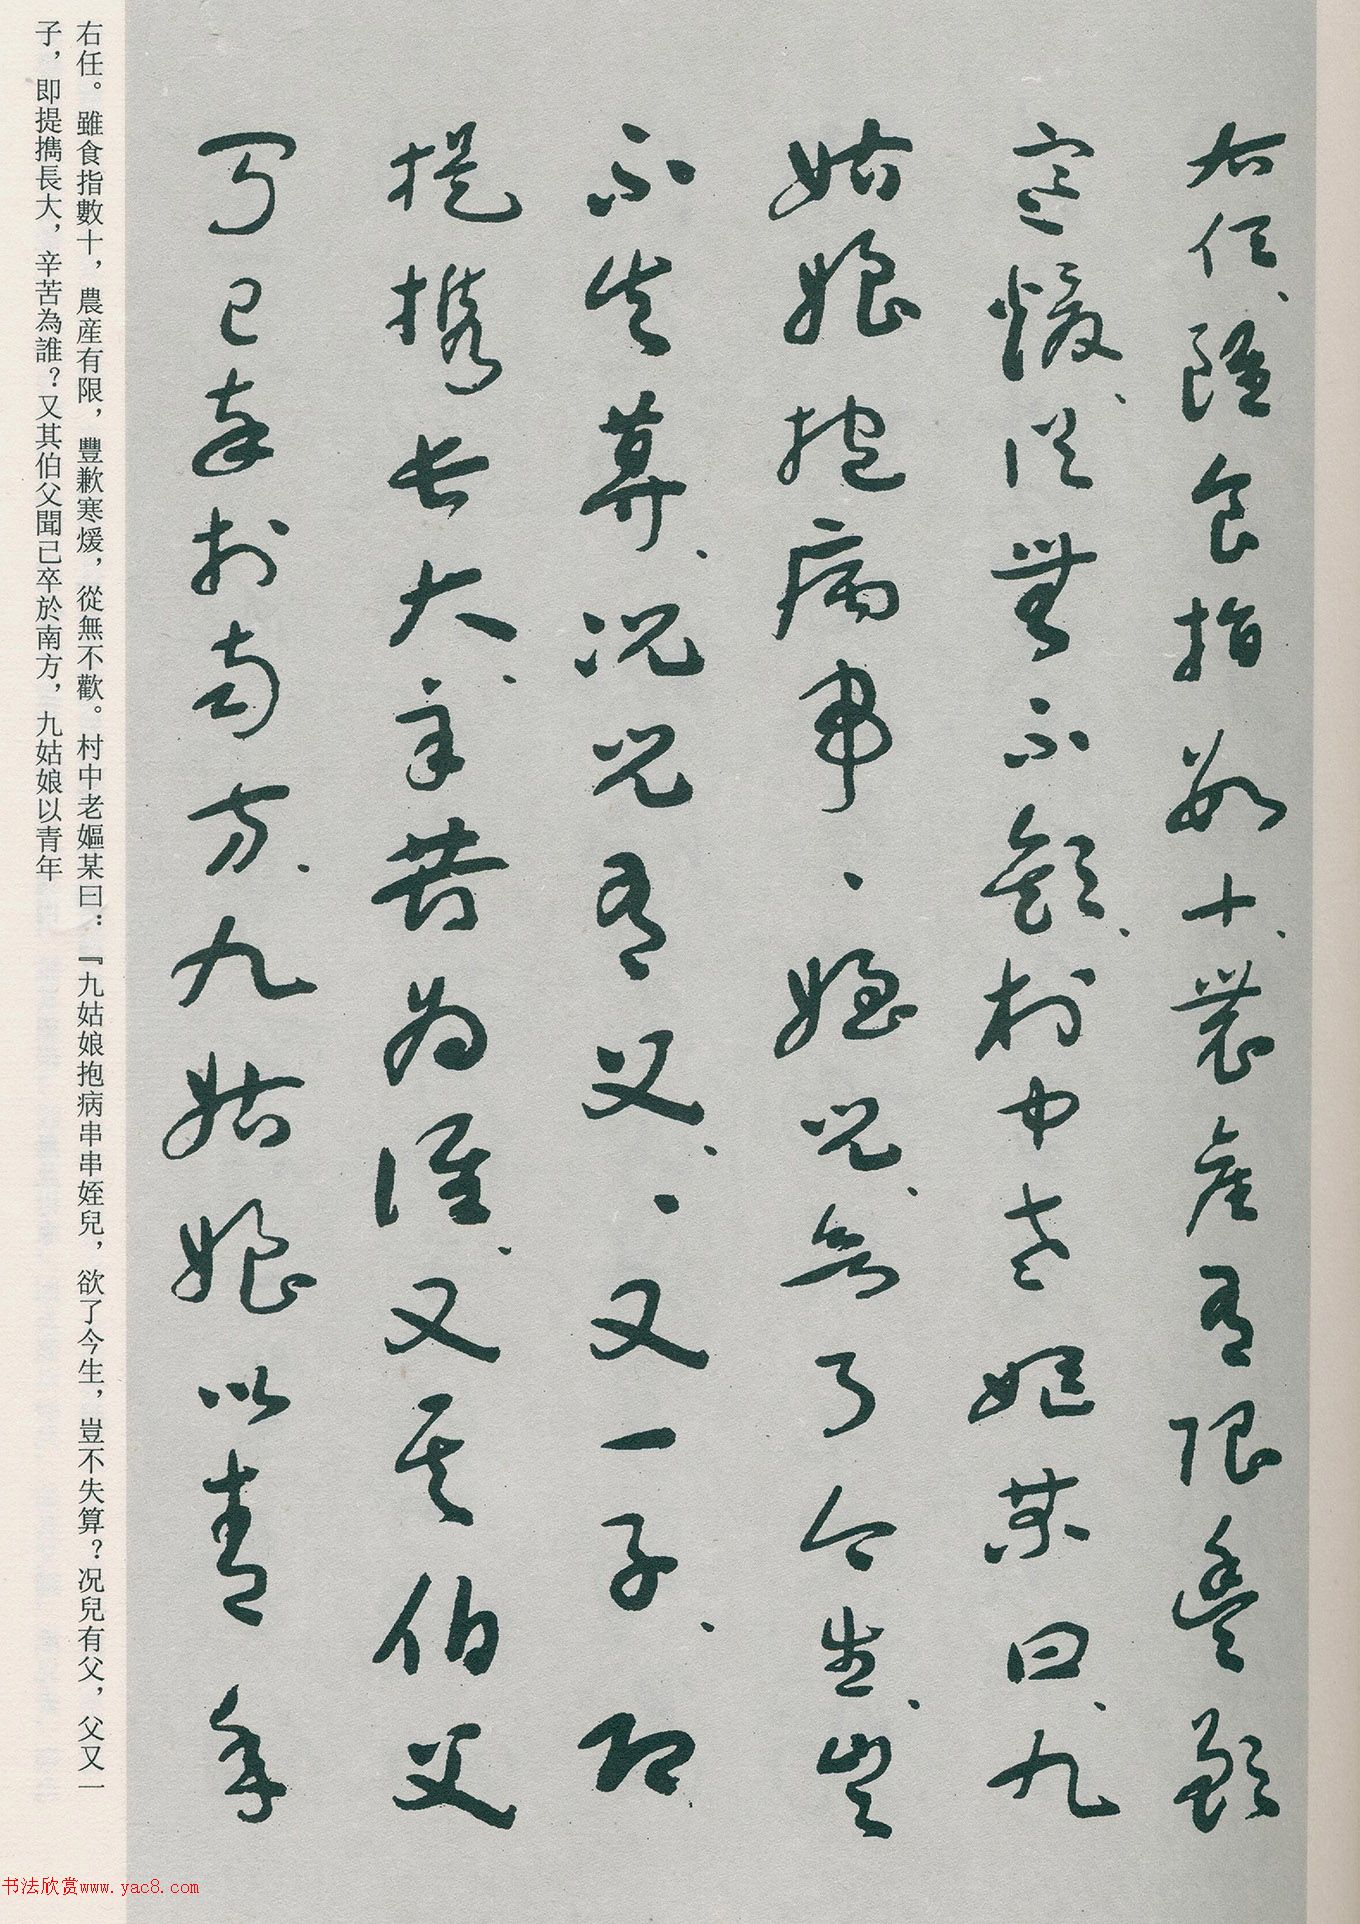 右任、雖食指數十、農產有限豐歉
寒煖、從無不歡、村中老嫗某曰、九
姑娘抱病串、姪兒、欲了今生、豈
不失算、況兒有父、、又一子、即
提攜長大、辛苦為誰、又其伯父
聞已卒於南方、九姑娘以青年
右任。雖食指數十，農産有限，豐歉寒煖，從無不歡。村中老嫗某曰：『九姑娘抱病串串姪兒，欲了今生，豈不失算？况兒有父，父又一
子，即提攜長大，辛苦為誰？又其伯父聞已卒於南方，九姑娘以青年
书法欣赏www.yac8.com